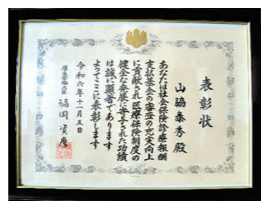 表彰状
山脇泰秀 殿
あなたは社会保険診療報酬
支払基金の審査の充実向上
に貢献され医療保険制度の
健全な発展に寄与された功績
は誠に顕著であります
よってここに表彰します
令和六年十一月五日
厚生労働大臣 福岡資麿